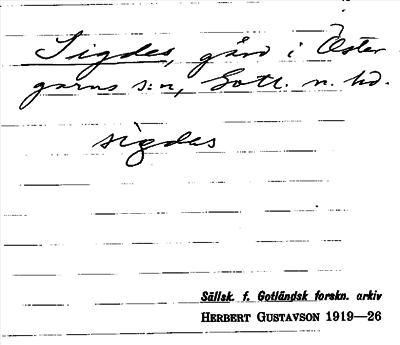 Sigdes, gård i Öster
garns s:n, Gotl. n. hd.
sìgdas
Sällsk. f. Gotländsk forskn. arkiv
HERBERT GUSTAVSON 1919—26